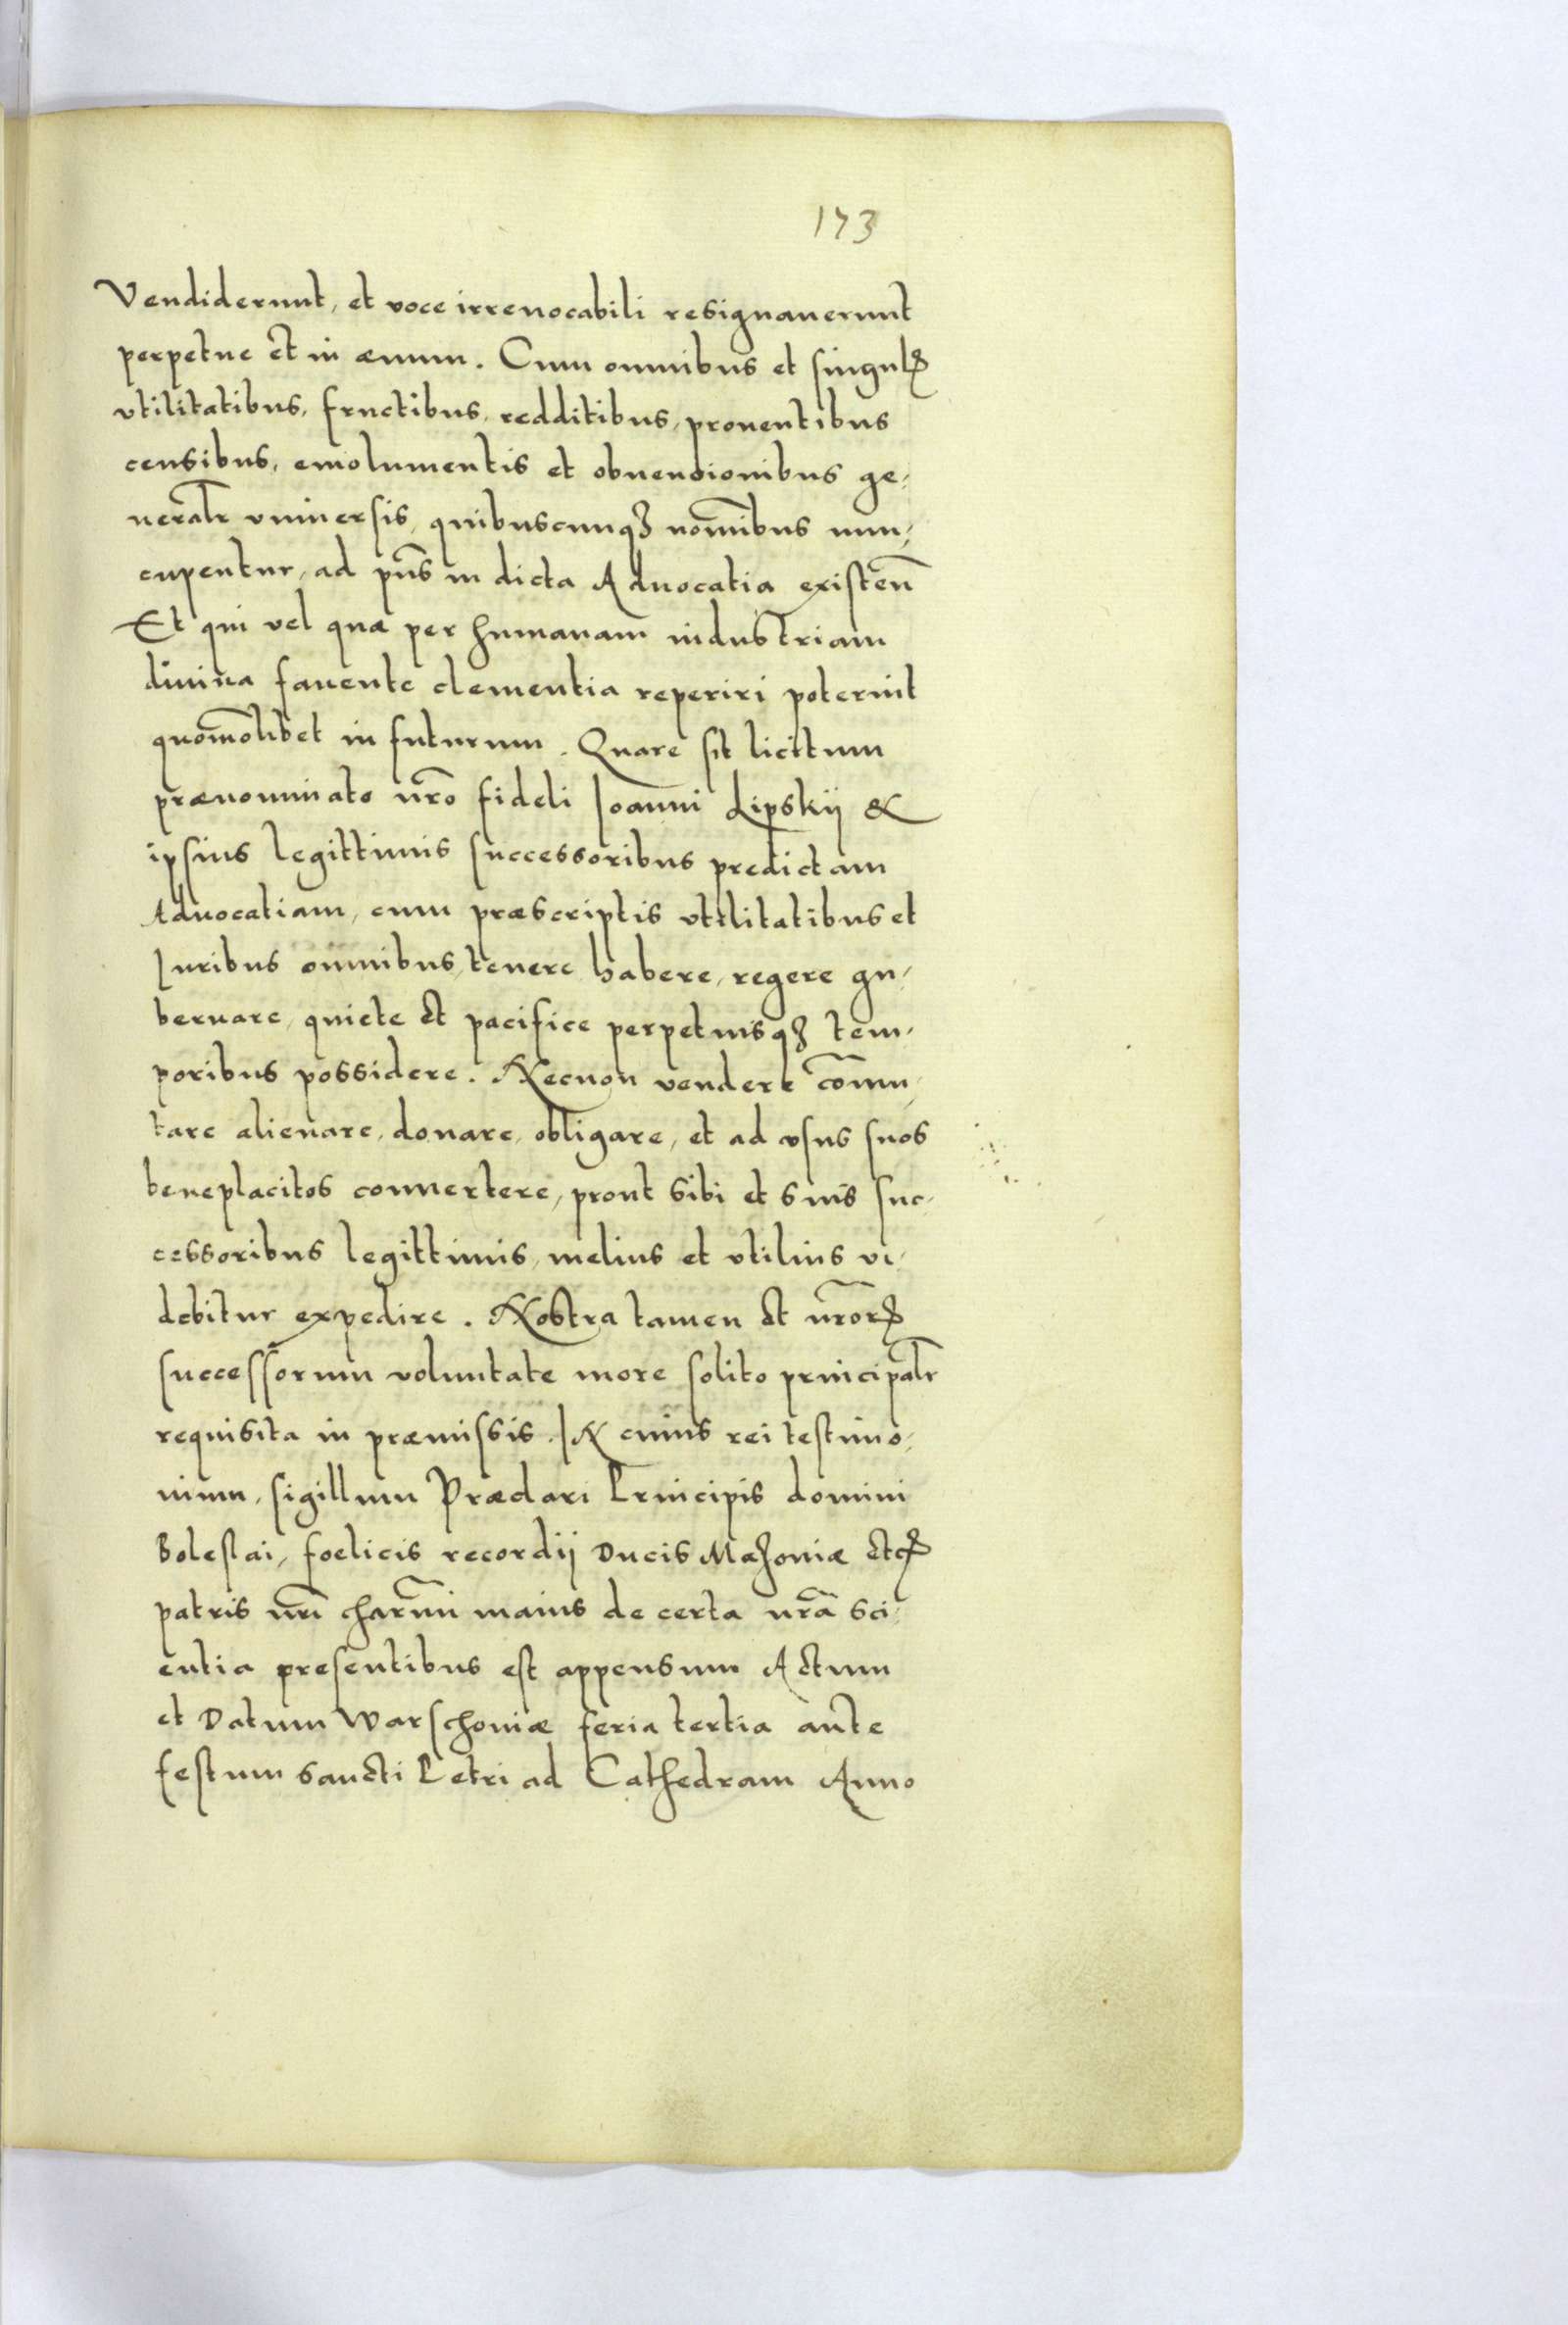 173
Vendiderunt, et voce irreuocabili resignauerunt
perpetue et in æuum. Cum omnibus et singulꝭ
vtilitatibus, fructibus, redditibus, prouentibus
censibus, emolumentis et obuencionibus ge-
neralr̃ vniuersis, quibuscunqꝫ nom̃ibus nun-
cupentur, ad pñs in dicta Aduocatia existeñ
Et qui vel quæ per humanam industriam
diuina fauente clementia reperiri poterint
quom̃olibet in futurum. Quare sit licitum
prænominato nr̃o fideli Joanni Lipskij &
ipsius legittimis successoribus predictam
Aduocatiam, cum præscriptis vtilitatibus et
Juribus omnibus, tenere habere, regere gu-
bernare, quiete et pacifice perpetuisqꝫ tem-
poribus possidere. Necnon vendere com̃u-
tare alienare, donare, obligare, et ad vsus suos
beneplacitos conuertere, prout sibi et suis suc-
cessoribus legittimis, melius et vtilius vi-
debitur expedire. Nostra tamen et nr̃orꝝ
successorum voluntate more solito principalr̃
requisita in præmissis. JN cuius rei testimo-
nium, sigillum Præclari Principis domini
Boleslai, foelicis recordij Ducis Mazoniæ etcꝭ
patris nr̃i charm̃i maius de certa nr̃a sci-
entia presentibus est appensum Actum
et Datum Warschouiæ feria tertia ante
festum sancti Petri ad Cathedram Anno